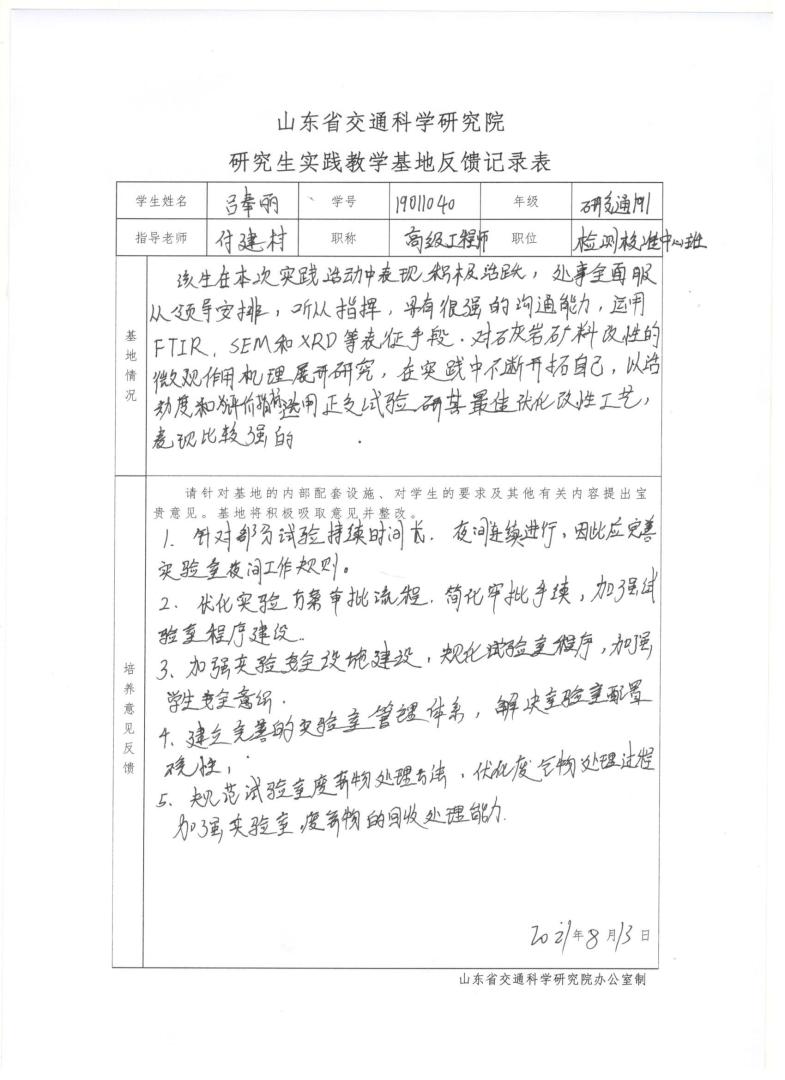 山东省交通科学研究院
研究生实践教学基地反馈记录表
学生姓名 吕奉丽 学号 19011040 年级 研交通191
指导老师 付建村 职称 高级工程师 职位 检测校准中心
基地情况
该生在本次实践活动中表现积极活跃，处事全面服
从领导安排，听从指挥，具有很强的沟通能力，运用
FTIR、SEM和XRD等表征手段．对石灰岩矿料改性的
微观作用机理展开研究，在实践中不断开拓自己，以活
动度和评价指标选用正交试验研其最佳优化改性工艺，
表现比较强的
培养意见反馈
请针对基地的内部配套设施、对学生的要求及其他有关内容提出宝
贵意见。基地将积极吸取意见并整改。
1. 针对部分试验持续时间长．夜间连续进行，因此应完善
实验室夜间工作规则。
2. 优化实验方案审批流程．简化审批手续，加强试
验室程序建设．
3、加强实验安全设施建设，规化试验室程序，加强
学生安全意识．
4、建立完善的实验室管理体系，解决实验室配置
5、规范试验室废弃物处理方法，优化废弃物处理过程
加强实验室废弃物的回收处理能力．
2021年8月13日
山东省交通科学研究院办公室制